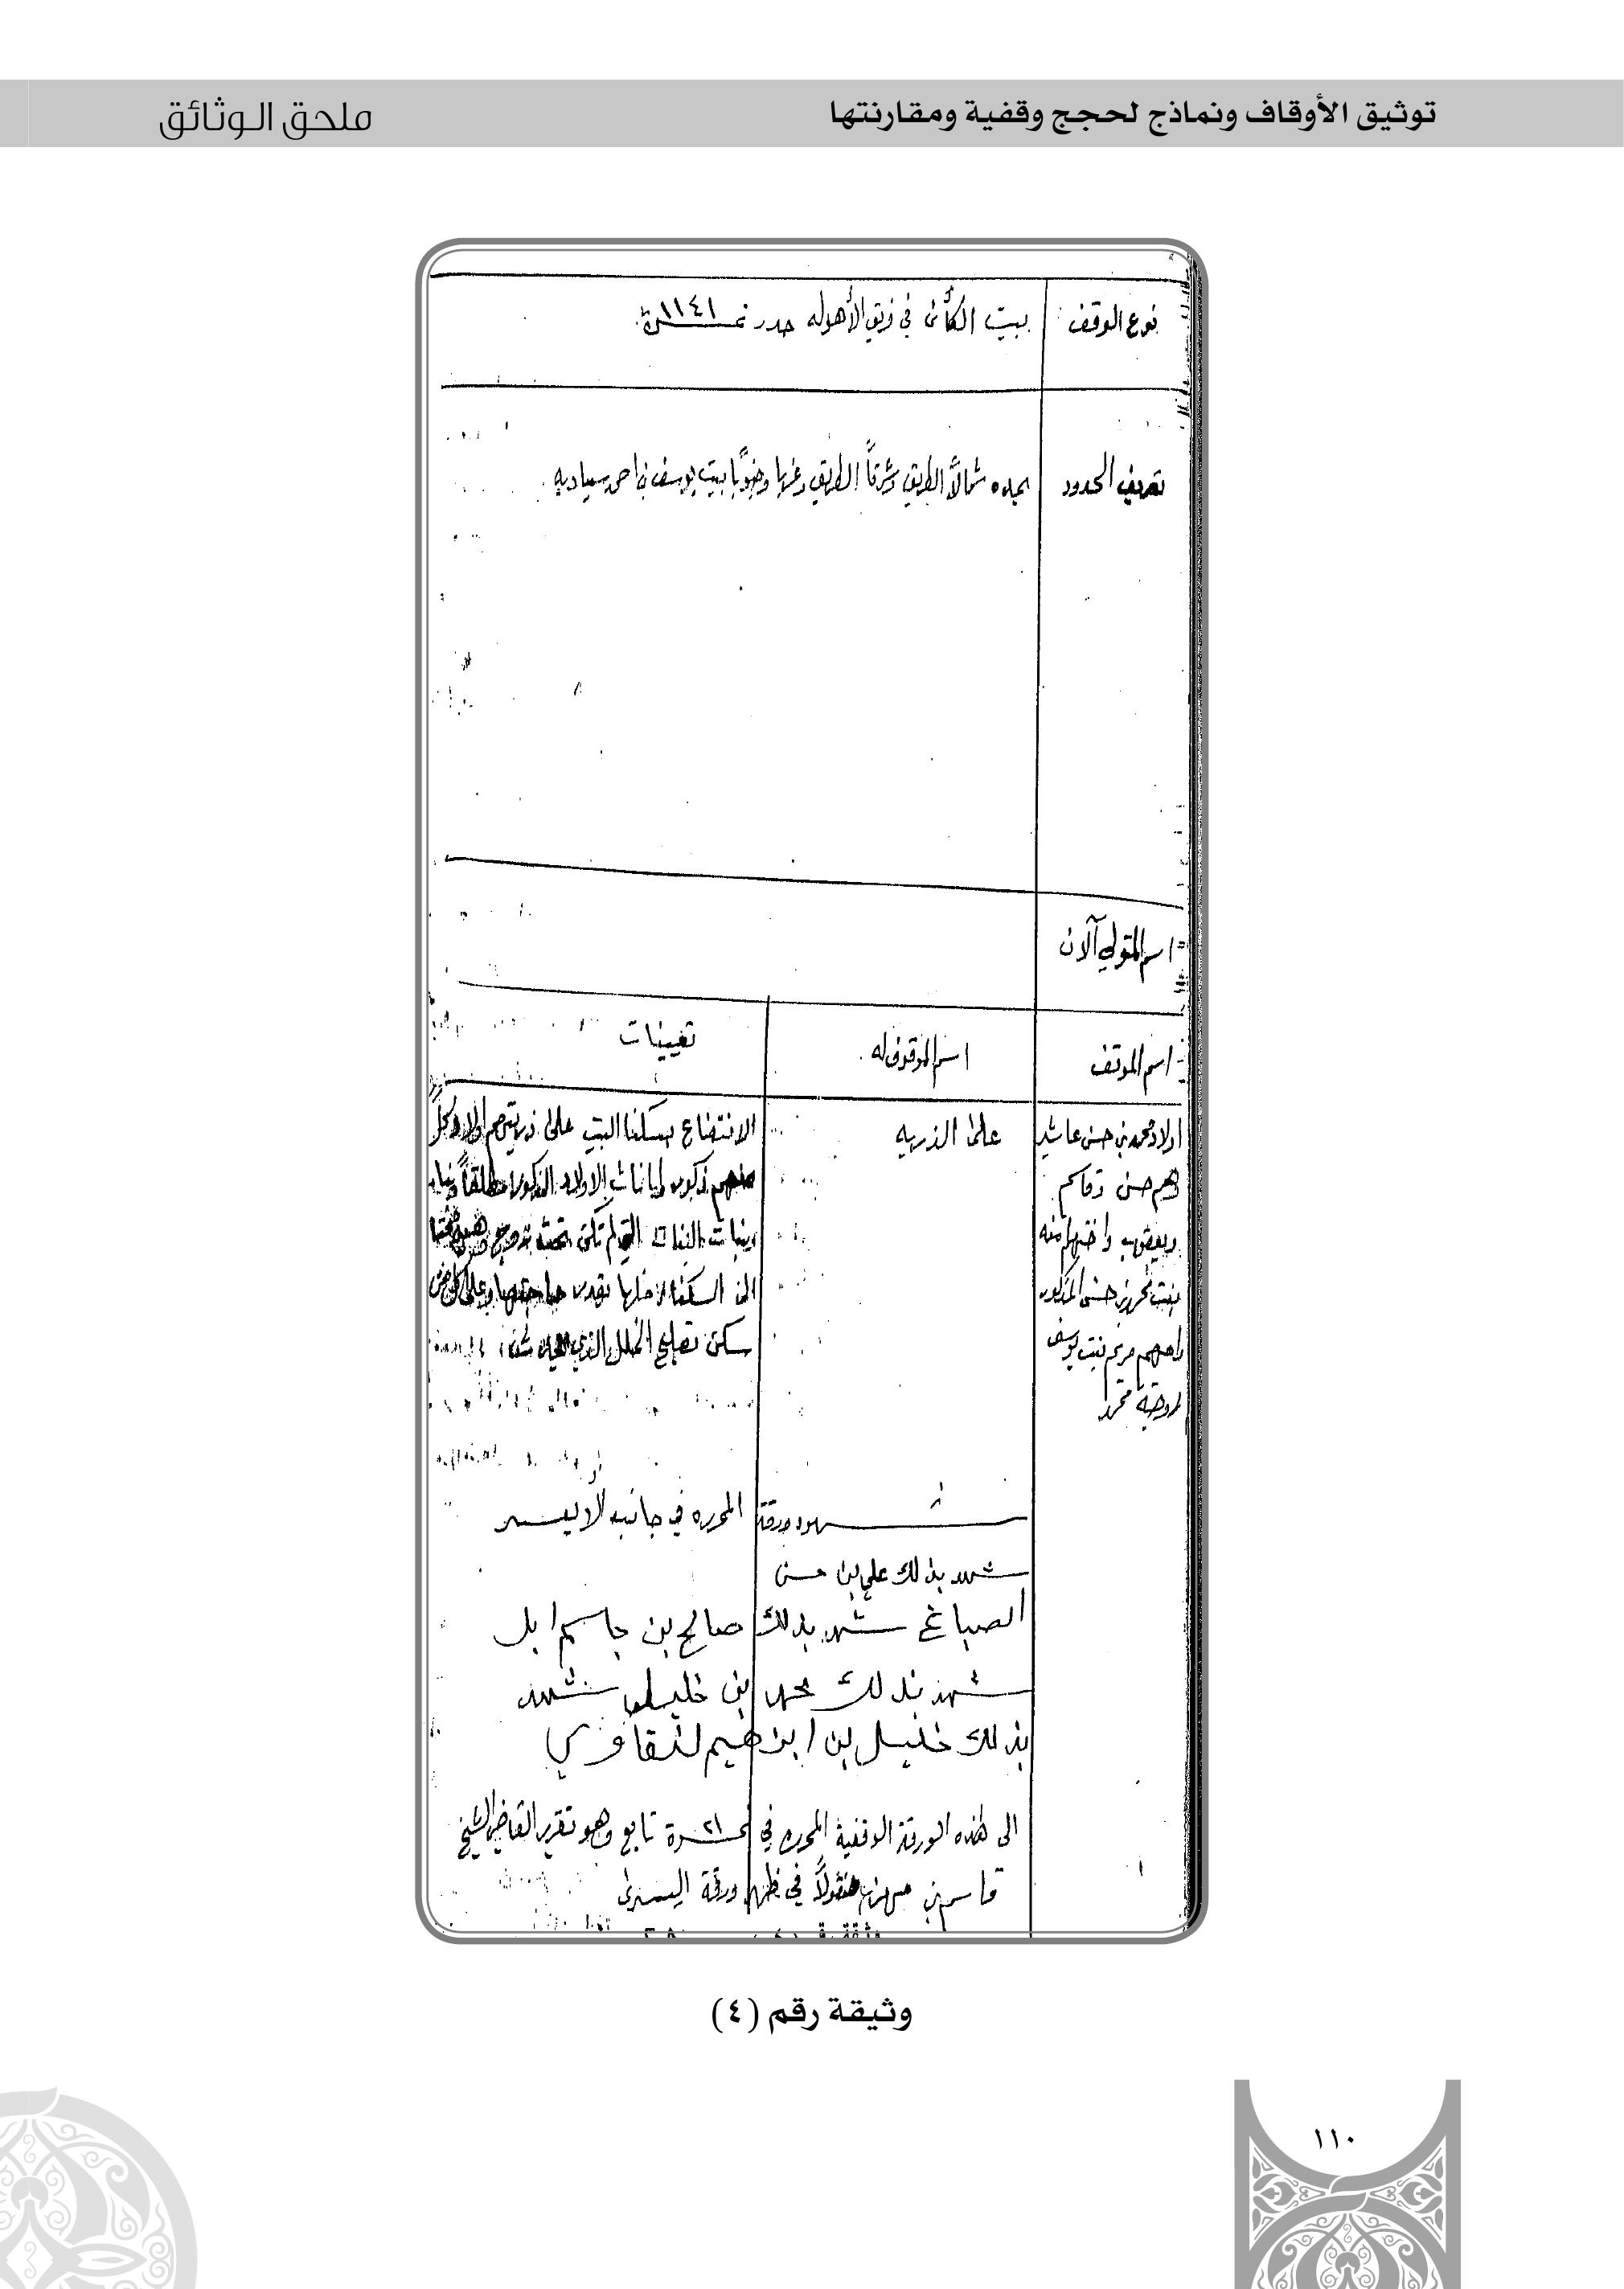 توثيق الأوقاف ونماذج لحجج وقفية ومقارنتها
ملحق الوثائق
نوع الوقف
بيت الكائن في فريق الأهوله حدر نمرة ١١٤١
تعريف الحدود
يحده شمالاً الطريق وشرقاً الطريق وغربا وجنوباً بيت يوسف بن احمد سيادي
اسم المتولي آلان
اسم الموقف
اسم الموقوف له
تعيينات
اولاد محمد بن حسن عاشير
وهم حسن وقاسم
ويعقوب واختهم منه
بنت محمد بن حسن المذكور
وامهم مريم بنت يوسف
زوجة محمد
على الذريه
الانتفاع بسكنا البيت على ذريتهم اولاد كلاً
منهم ذكور اوانات الاولاد الذكور مطلقاً وبنات
وبنات البنات التي لم تكن تحت زوج
الى السكنا لها بقدر حاجتها وعلى كل من
سكن تصليح الخلل الذي
شهود ورقة المحرره في جانبه لأ يسر
شهد بذلك علي بن حسن
الصباغ شهد بذلك صالح بن جاسم ابل
شهد بذلك محمد بن خليل شهد
بذلك خليل بن ابراهيم لنقاوي
الى هذه الورقة الوقفية المحرره في نمرة ٢١ تابع وهو تقرير القاضي الشيخ
قاسم بن مهزع منقولاً في ظهر ورقة اليسرى
وثيقة رقم (٤)
١١٠